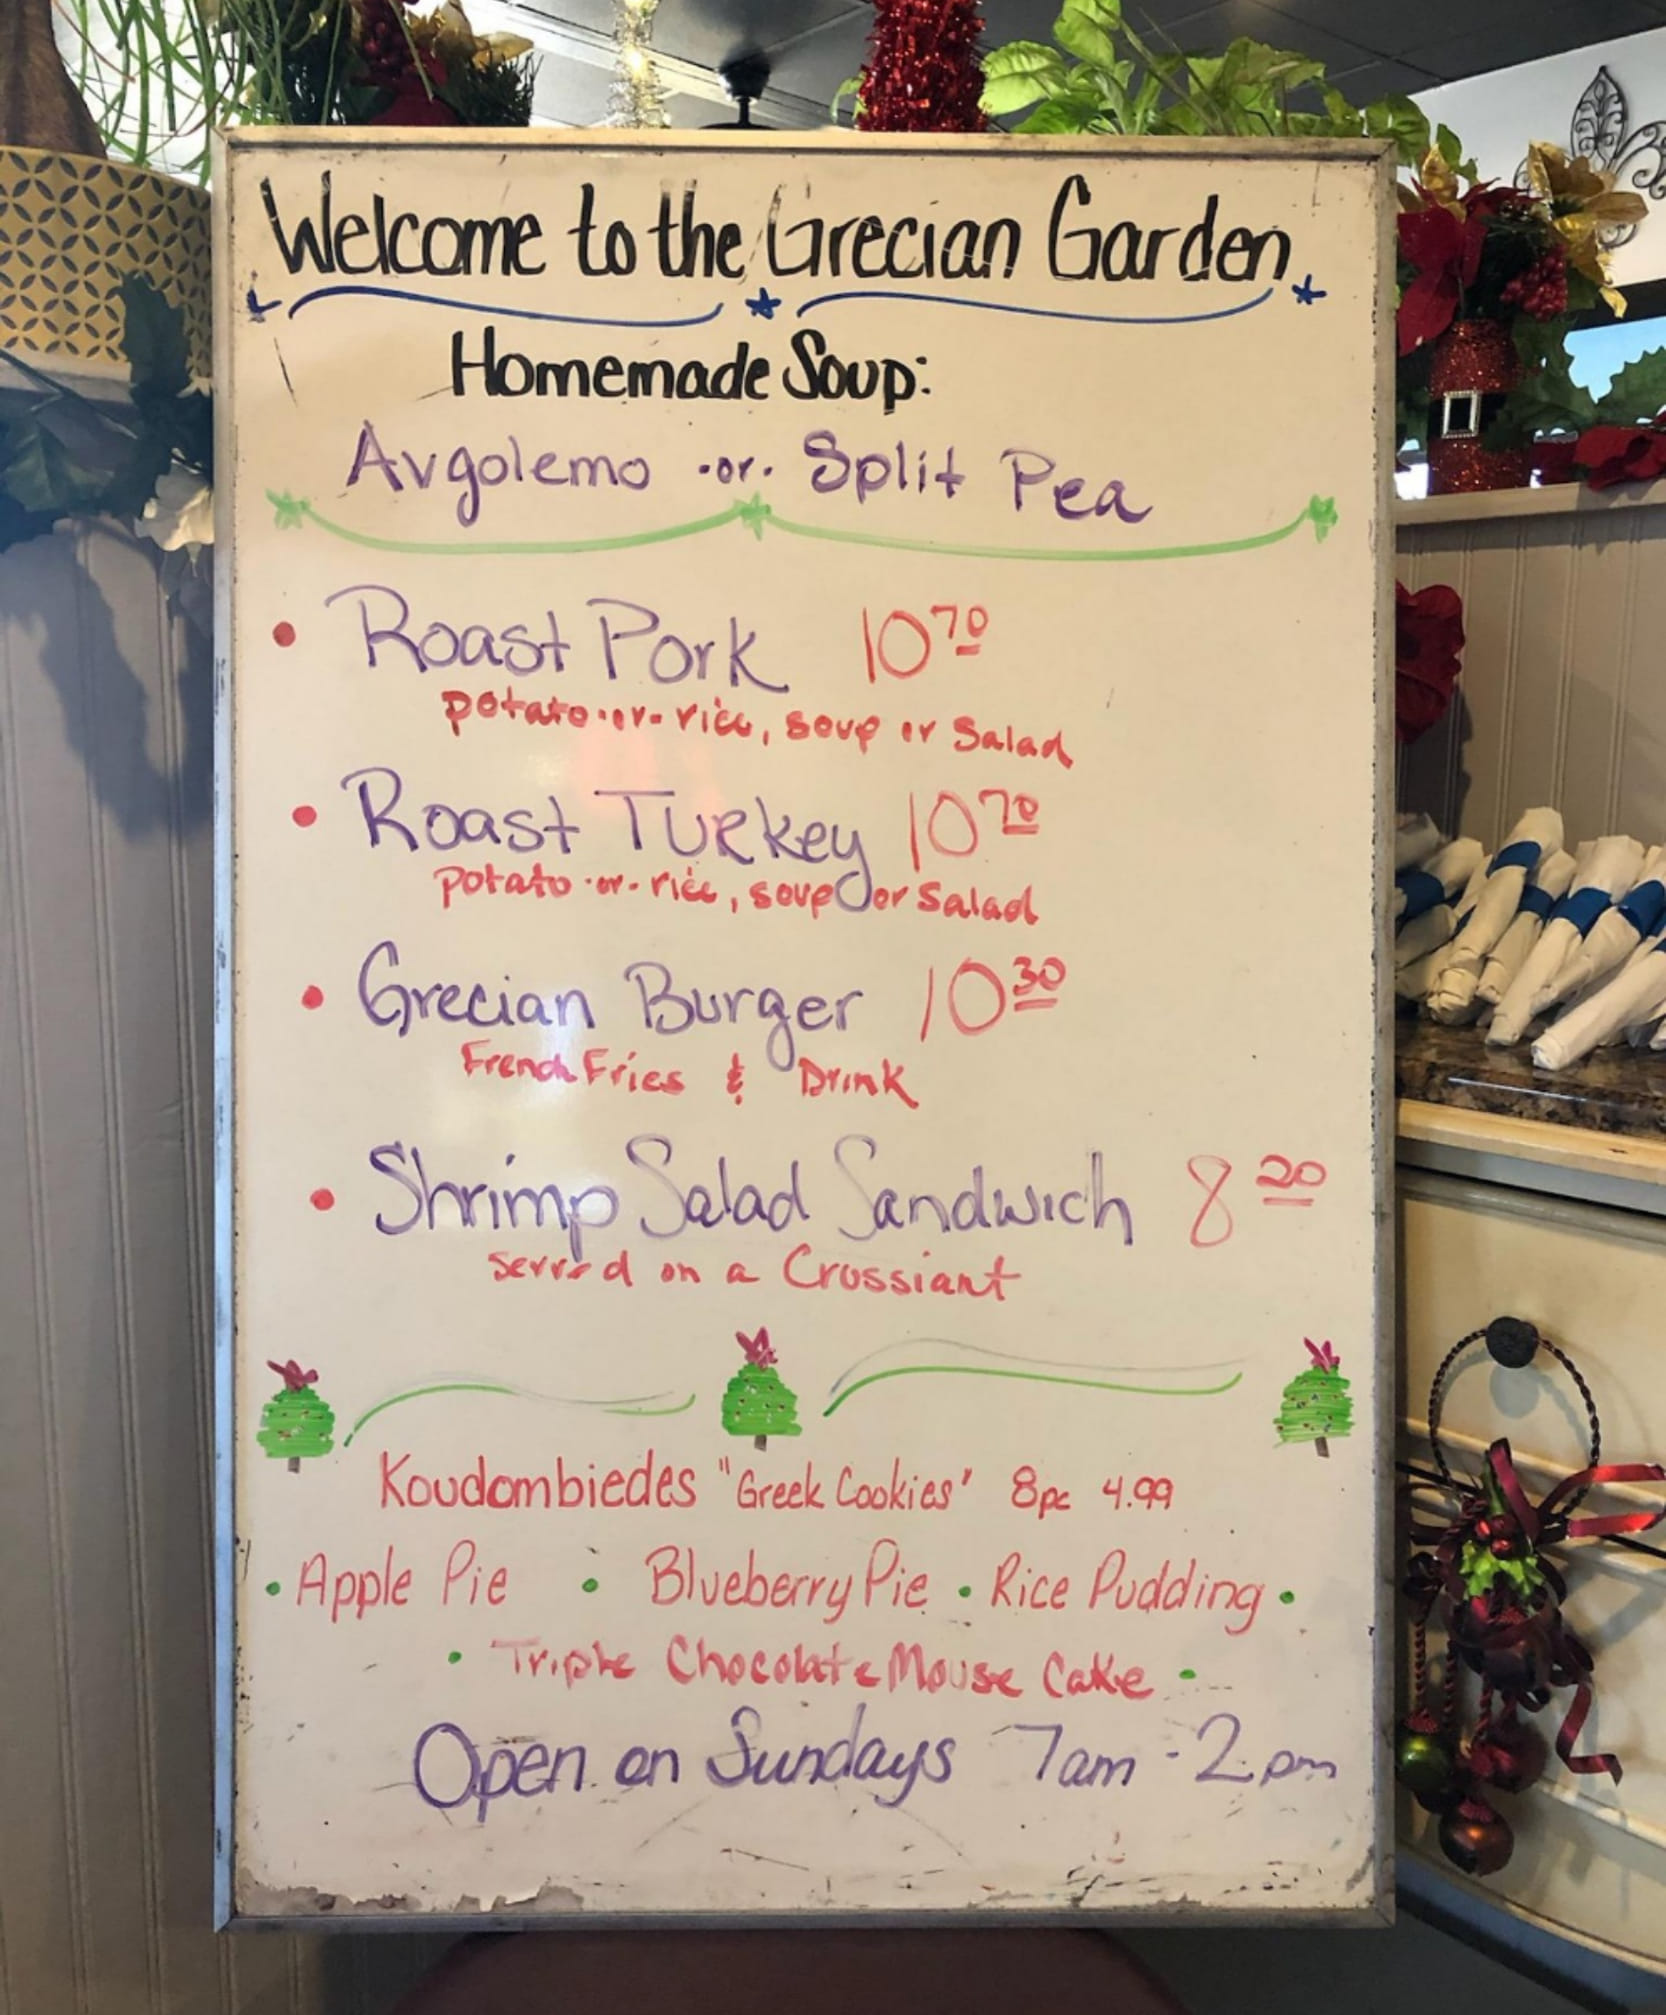 Welcome to the Grecian Garden
Homemade Soup:
Avgolemo -or- Split Pea
• Roast Pork 10 70
potato -or- rice, soup or Salad
• Roast Turkey 10 70
potato -or- rice, soup or Salad
• Grecian Burger 10 30
French Fries & Drink
• Shrimp Salad Sandwich 8 20
served on a Crossiant
Koudombiedes "Greek Cookies" 8pc 4.99
• Apple Pie • Blueberry Pie • Rice Pudding •
• Triple Chocolate Mouse Cake •
Open on Sundays 7am - 2pm